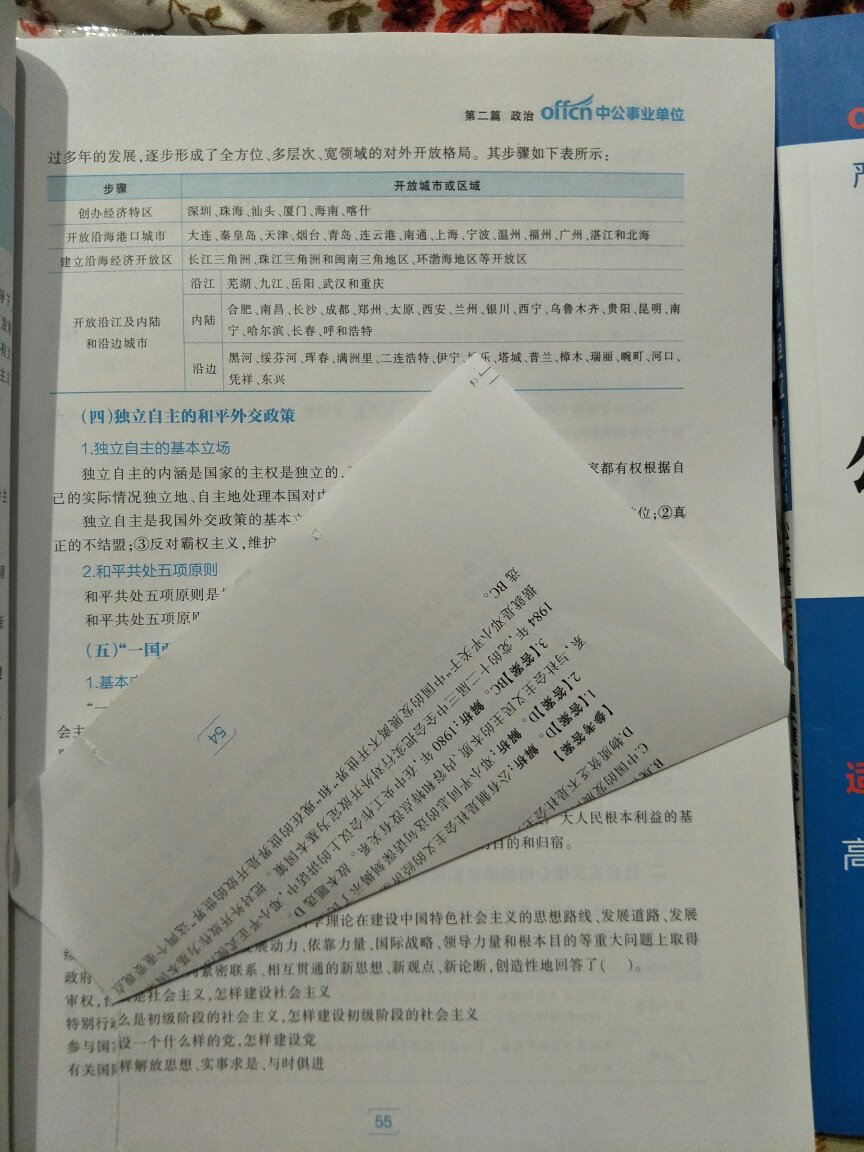 第二篇 政治 offcn中公事业单位
过多年的发展,逐步形成了全方位、多层次、宽领域的对外开放格局。其步骤如下表所示:
步骤 开放城市或区域
创办经济特区 深圳、珠海、汕头、厦门、海南、喀什
开放沿海港口城市 大连、秦皇岛、天津、烟台、青岛、连云港、南通、上海、宁波、温州、福州、广州、湛江和北海
建立沿海经济开放区 长江三角洲、珠江三角洲和闽南三角地区、环渤海地区等开放区
开放沿江及内陆
和沿边城市
沿江 芜湖、九江、岳阳、武汉和重庆
内陆 合肥、南昌、长沙、成都、郑州、太原、西安、兰州、银川、西宁、乌鲁木齐、贵阳、昆明、南
宁、哈尔滨、长春、呼和浩特
沿边 黑河、绥芬河、珲春、满洲里、二连浩特、伊宁、 乐、塔城、普兰、樟木、瑞丽、畹町、河口、
凭祥、东兴
(四)独立自主的和平外交政策
1.独立自主的基本立场
独立自主的内涵是国家的主权是独立的, 家都有权根据自
己的实际情况独立地、自主地处理本国对
独立自主是我国外交政策的基本立 位;②真
正的不结盟;③反对霸权主义,维护
2.和平共处五项原则
和平共处五项原则是
和平共处五项原则
(五)“一国
1.基本
“一
会主
大人民根本利益的基
的目的和归宿。
学理论在建设中国特色社会主义的思想路线、发展道路、发展
展动力、依靠力量、国际战略、领导力量和根本目的等重大问题上取得
政府 紧密联系、相互贯通的新思想、新观点、新论断,创造性地回答了( )。
审权, 是社会主义,怎样建设社会主义
特别行 么是初级阶段的社会主义,怎样建设初级阶段的社会主义
参与国 设一个什么样的党,怎样建设党
有关国 样解放思想、实事求是、与时俱进
55
C.中国的发展
D.物质贫乏不是社会
【参考答案】
1.【答案】D。 解析:公有制是社会主义的经济
2.【答案】D。 解析:邓小平同志的这句话深刻揭示了民
系,与社会主义民主的本质、内容和特点没有关系。故本题选D。
3.【答案】BC。 解析:1980年,在中央工作会议上的讲话中,邓小平正式
1984年,党的十二届三中全会把实行对外开放定为基本国策。把对外开放作为基本国
据就是邓小平关于“中国的发展离不开世界”和“现在的世界是开放的世界”这两个重要观点
选BC。
54